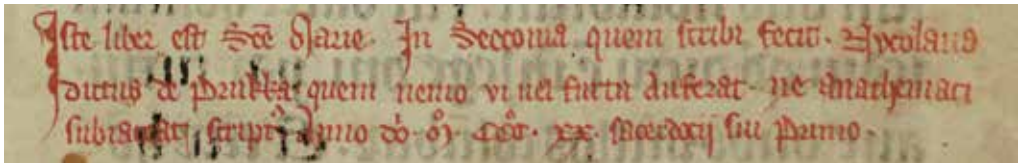 Iste liber est Sce Marie. In Seccouia quem scribi fecit. Nycolaus
dictus de Prukka quem nemo vi uel furtu Auferat ne anathemati
subiaceat script Anno do. M. CCC. xx. sacerdocij sui Primo.